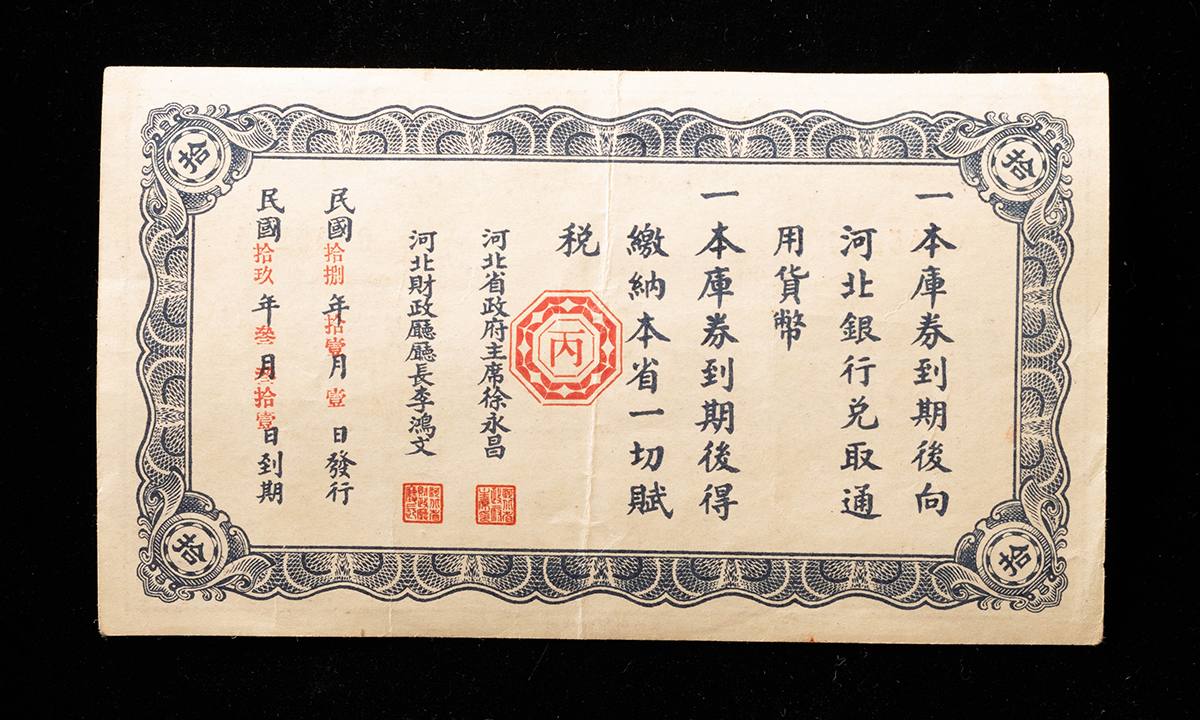 拾
拾
一本庫券到期後向
河北銀行兑取通
用貨幣
一本庫券到期後得
繳納本省一切賦
税
丙
河北省政府主席徐永昌
河北財政廳廳長李鴻文
民國拾捌年拾壹月壹日發行
民國拾玖年叁月叁拾壹日到期
拾
拾